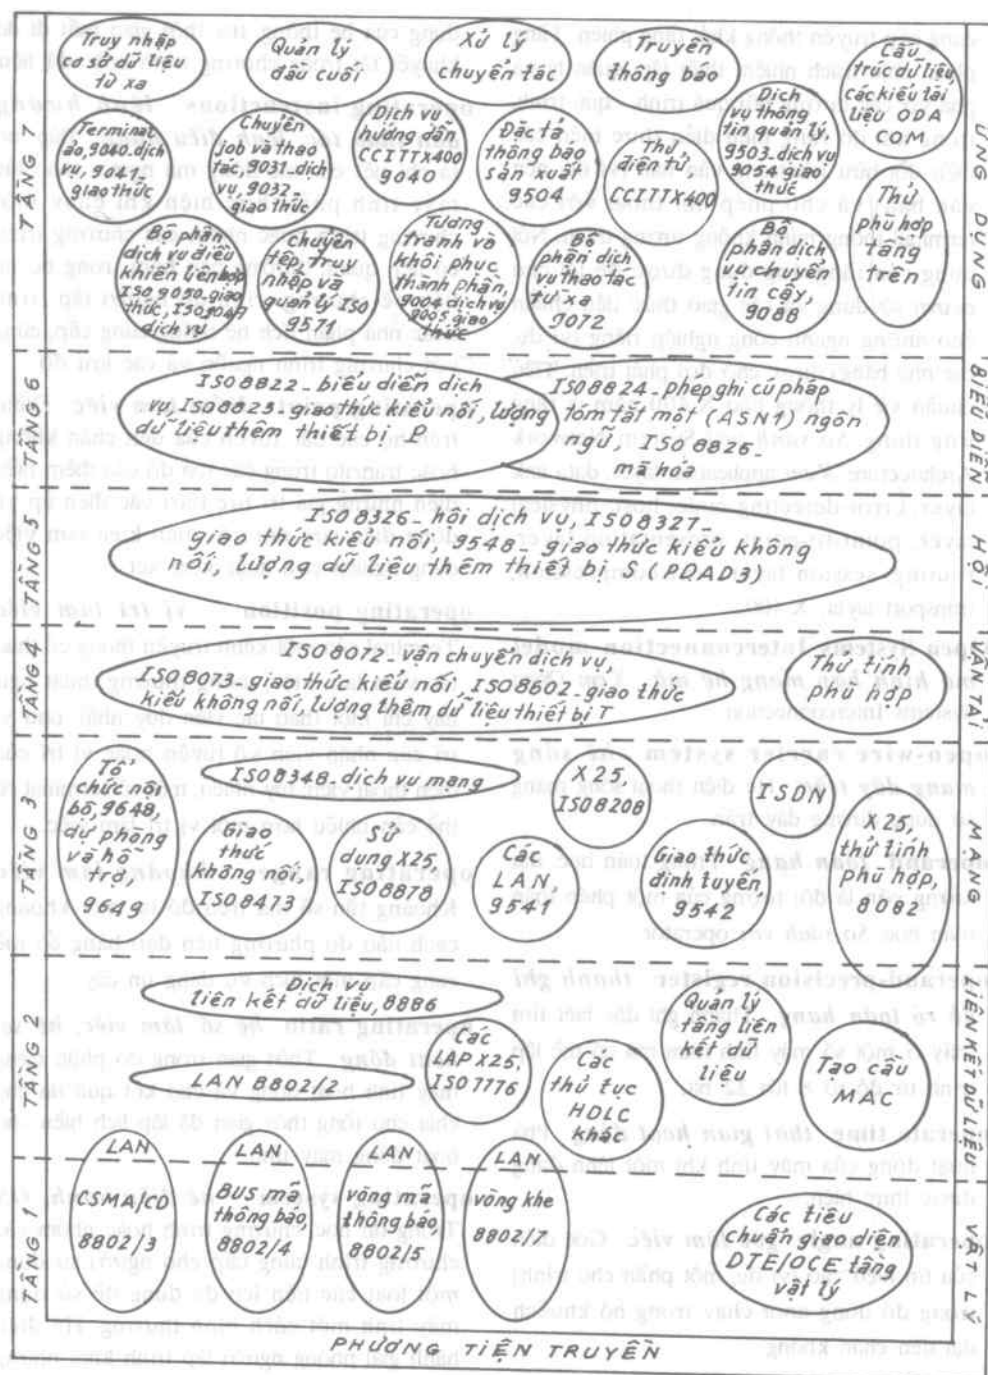 TẦNG 7
Truy nhập
cơ sở dữ liệu
từ xa
Quản lý
đầu cuối
Xử lý
chuyển tác
Truyền
thông báo
Cấu
trúc dữ liệu
các kiểu tài
liệu ODA
COM
Terminal
ảo, 9040. dịch
vụ, 9041,
giao thức
Chuyển
Job và thao
tác, 9031. dịch
vụ, 9032-
giao thức
Dịch vụ
hướng dẫn
CCITTX400
9040
Đặc tả
thông báo
sản xuất
9504
Thư
điện tử,
CCITTX400
Dịch
vụ thông
tin quản lý,
9503. dịch vụ
9054 giao
thức
Thử
phù hợp
riêng
trên
Bộ phần
dịch vụ điều
khiển liên hợp
ISO 9050. giao
thức, ISO
dịch vụ
Chuyển
tệp, truy
nhập và
quản lý ISO
9571
Tương
tranh và
khôi phục
thành phần,
9004 dịch vụ
9005 giao
thức
Bộ
phần dịch
vụ thao tác
từ xa
9072
Bộ
phần dịch
vụ chuyển
tin cậy,
9088
ỨNG DỤNG
TẦNG 6
ISO 8822 _ biểu diễn dịch
vụ, ISO 8823 - giao thức kiểu nối, lượng
dữ liệu thêm thiết bị P
ISO 8824 _ phép ghi cú pháp
tóm tắt một (ASN1) ngôn
ngữ, ISO 8826 -
mã hóa
BIỂU DIỄN
TẦNG 5
ISO 8326 _ hồi dịch vụ, ISO 8327 _
giao thức kiểu nối, 9548 - giao thức kiểu không
nối, lượng dữ liệu thêm thiết bị S (PDAD3)
HỒI
TẦNG 4
ISO 8072 - vận chuyển dịch vụ,
ISO 8073 - giao thức kiểu nối, ISO 8602 - giao thức
kiểu không nối, lượng thêm dữ liệu thiết bị T
Thử tính
phù hợp
VẬN TẢI
TẦNG 3
Tổ
chức nội
bộ, 9648,
dự phòng
và hỗ
trợ,
9649
ISO 8348 - dịch vụ mạng
X25,
ISO 8208
ISDN
Giao
thức
không nối,
ISO 8473
Sử
dụng X25,
ISO 8878
Các
LAN
9541
Giao thức
định tuyến,
9542
X25,
thử tính
phù hợp,
8082
MẠNG
TẦNG 2
Dịch vụ
liên kết dữ liệu, 8886
Các
LAP X25,
ISO 7776
LAN 8802/2
Các
thủ tục
HDLC
khác
Quản lý
tầng liên
kết dữ
liệu
Tạo cầu
MAC
LIÊN KẾT DỮ LIỆU
TẦNG 1
LAN
CSMA/CD
8802/3
LAN
BUS mã
thông báo,
8802/4
LAN
vòng mã
thông báo,
8802/5
LAN
vòng khe
8802/7
Các tiêu
chuẩn giao diện
DTE/OCE tầng
vật lý
VẬT LÝ
PHƯƠNG TIỆN TRUYỀN